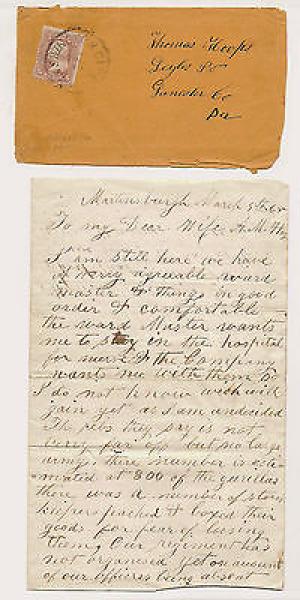 Thomas Hoops
Gaps PO
Lancaster Co
Pa
Martinsburgh March 5
To my Dear Wife A. M.
I am still here we have
a very agreable ward
master & things in good
order & comfortable
the ward Master wants
me to stay in the hospital
for nurse & the Company
wants me with them to
I do not know wich wich
join yet as I am undecided
The rebs they say is not
very far off but no large
army, there number is esti-
mated at 800 of the gurilas
there was a number of store
keepers packed & boxed their
goods for fear of loosing
them, Our regiment has
not organised yet on amount
of our officers being absent